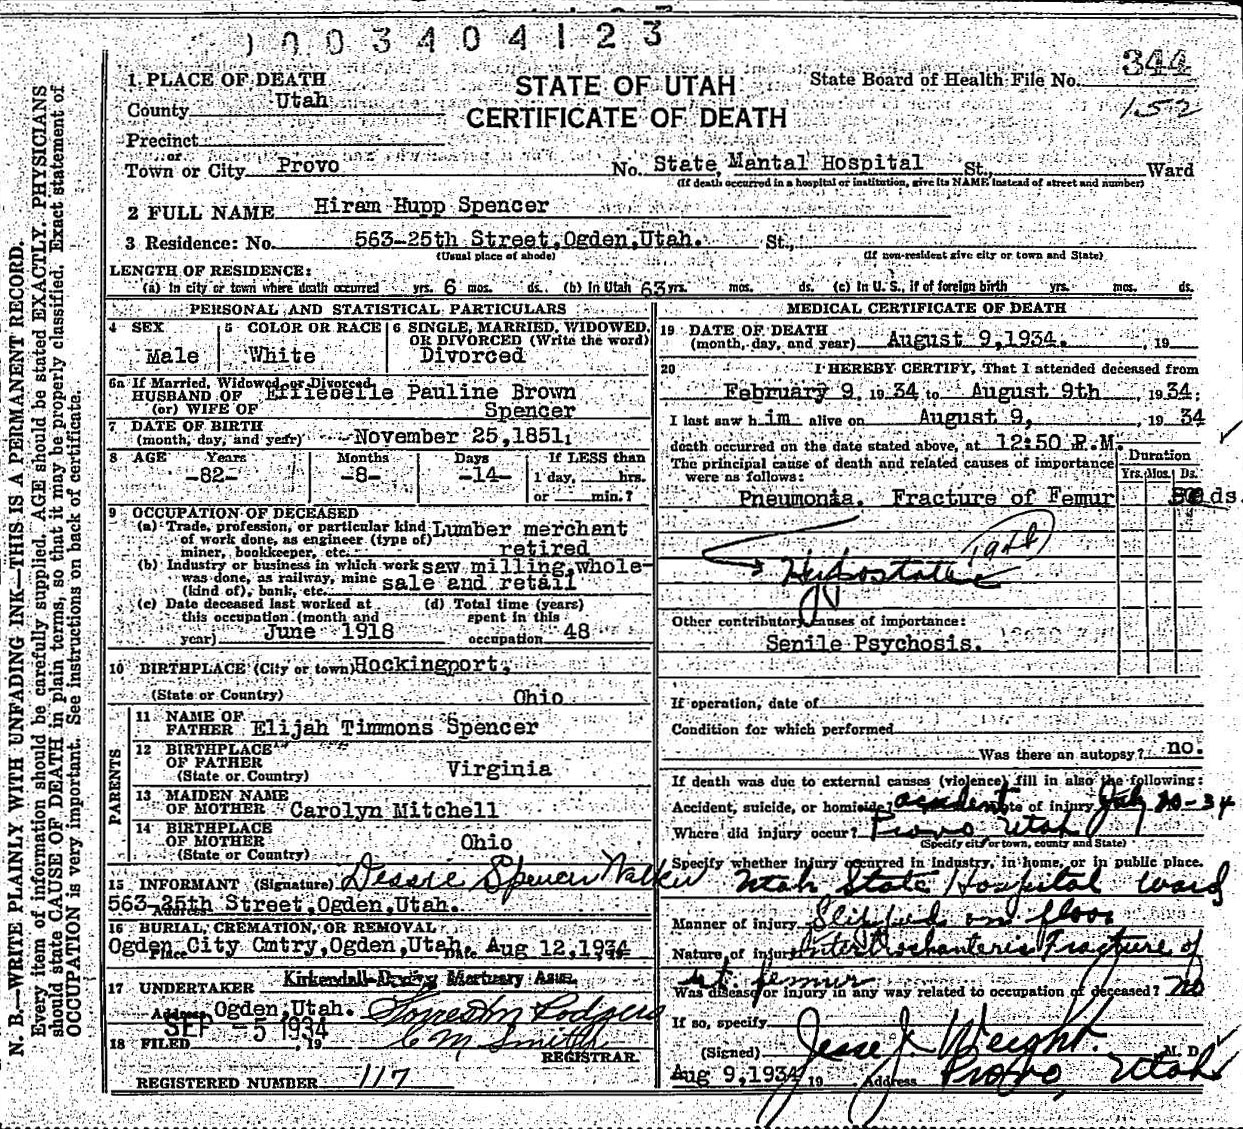 1003404123
344
152
STATE OF UTAH
CERTIFICATE OF DEATH
State Board of Health File No.
1. PLACE OF DEATH
County Utah
Precinct
or
Town or City Provo No. State Mantal Hospital St., Ward
(If death occurred in a hospital or institution, give its NAME instead of street and number)
2 FULL NAME Hiram Hupp Spencer
3 Residence: No. 563-25th Street,Ogden,Utah. St.,
(Usual place of abode) (If non-resident give city or town and State)
LENGTH OF RESIDENCE:
(a) In city or town where death occurred yrs. 6 mos. ds. (b) In Utah 63 yrs. mos. ds. (c) In U. S., if of foreign birth yrs. mos. ds.
PERSONAL AND STATISTICAL PARTICULARS
4 SEX
Male
5 COLOR OR RACE
White
6 SINGLE, MARRIED, WIDOWED,
OR DIVORCED (Write the word)
Divorced
6a If Married, Widowed, or Divorced
HUSBAND OF Effiebelle Pauline Brown
(or) WIFE OF Spencer
7 DATE OF BIRTH
(month, day, and year) November 25,1851,
8 AGE Years Months Days If LESS than
-82- -8- -14- 1 day, hrs.
or min.?
9 OCCUPATION OF DECEASED
(a) Trade, profession, or particular kind Lumber merchant
of work done, as engineer (type of)
miner, bookkeeper, etc. retired
(b) Industry or business in which work saw milling,whole-
was done, as railway, mine sale and retail
(kind of), bank, etc.
(c) Date deceased last worked at
this occupation (month and
year) June 1918
(d) Total time (years)
spent in this
occupation 48
10 BIRTHPLACE (City or town) Hockingport,
(State or Country) Ohio
PARENTS
11 NAME OF
FATHER Elijah Timmons Spencer
12 BIRTHPLACE
OF FATHER
(State or Country) Virginia
13 MAIDEN NAME
OF MOTHER Carolyn Mitchell
14 BIRTHPLACE
OF MOTHER Ohio
(State or Country)
15 INFORMANT (Signature) Dessie Spencer Walker
563-25th Street,Ogden,Utah.
Address
16 BURIAL, CREMATION, OR REMOVAL
Ogden City Cmtry,Ogden,Utah. Aug 12,1934
Place Date 19
Kirkendall-Mortuary Assn.
17 UNDERTAKER
Address Ogden,Utah.
SEP -5 1934
18 FILED , 19 C M Smith
REGISTRAR.
REGISTERED NUMBER 117
MEDICAL CERTIFICATE OF DEATH
19 DATE OF DEATH
(month, day, and year) August 9,1934. , 19
20 I HEREBY CERTIFY, That I attended deceased from
February 9, 1934 to August 9th , 1934;
I last saw h im alive on August 9, , 1934
death occurred on the date stated above, at 12:50 P.M
The principal cause of death and related causes of importance
were as follows:
Duration
Yrs. Mos. Ds.
Pneumonia. Fracture of Femur ds.
Hypostatic
Other contributory causes of importance:
Senile Psychosis.
If operation, date of
Condition for which performed
Was there an autopsy? no.
If death was due to external causes (violence) fill in also the following:
Accident, suicide, or homicide? accident Date of injury July 20-34
Where did injury occur? Provo, Utah
(Specify city or town, county and State)
Specify whether injury occurred in industry, in home, or in public place.
Utah State Hospital ward
Manner of injury Slipped on floor
Nature of injury Inter Trochanteric Fracture of
rt. femur
Was disease or injury in any way related to occupation of deceased? no
If so, specify
(Signed) Jesse J. Weight. M. D.
Aug 9,1934 19 Address Provo, Utah
N. B.—WRITE PLAINLY WITH UNFADING INK—THIS IS A PERMANENT RECORD.
Every item of information should be carefully supplied. AGE should be stated EXACTLY. PHYSICIANS
should state CAUSE OF DEATH in plain terms, so that it may be properly classified. Exact statement of
OCCUPATION is very important. See instructions on back of certificate.